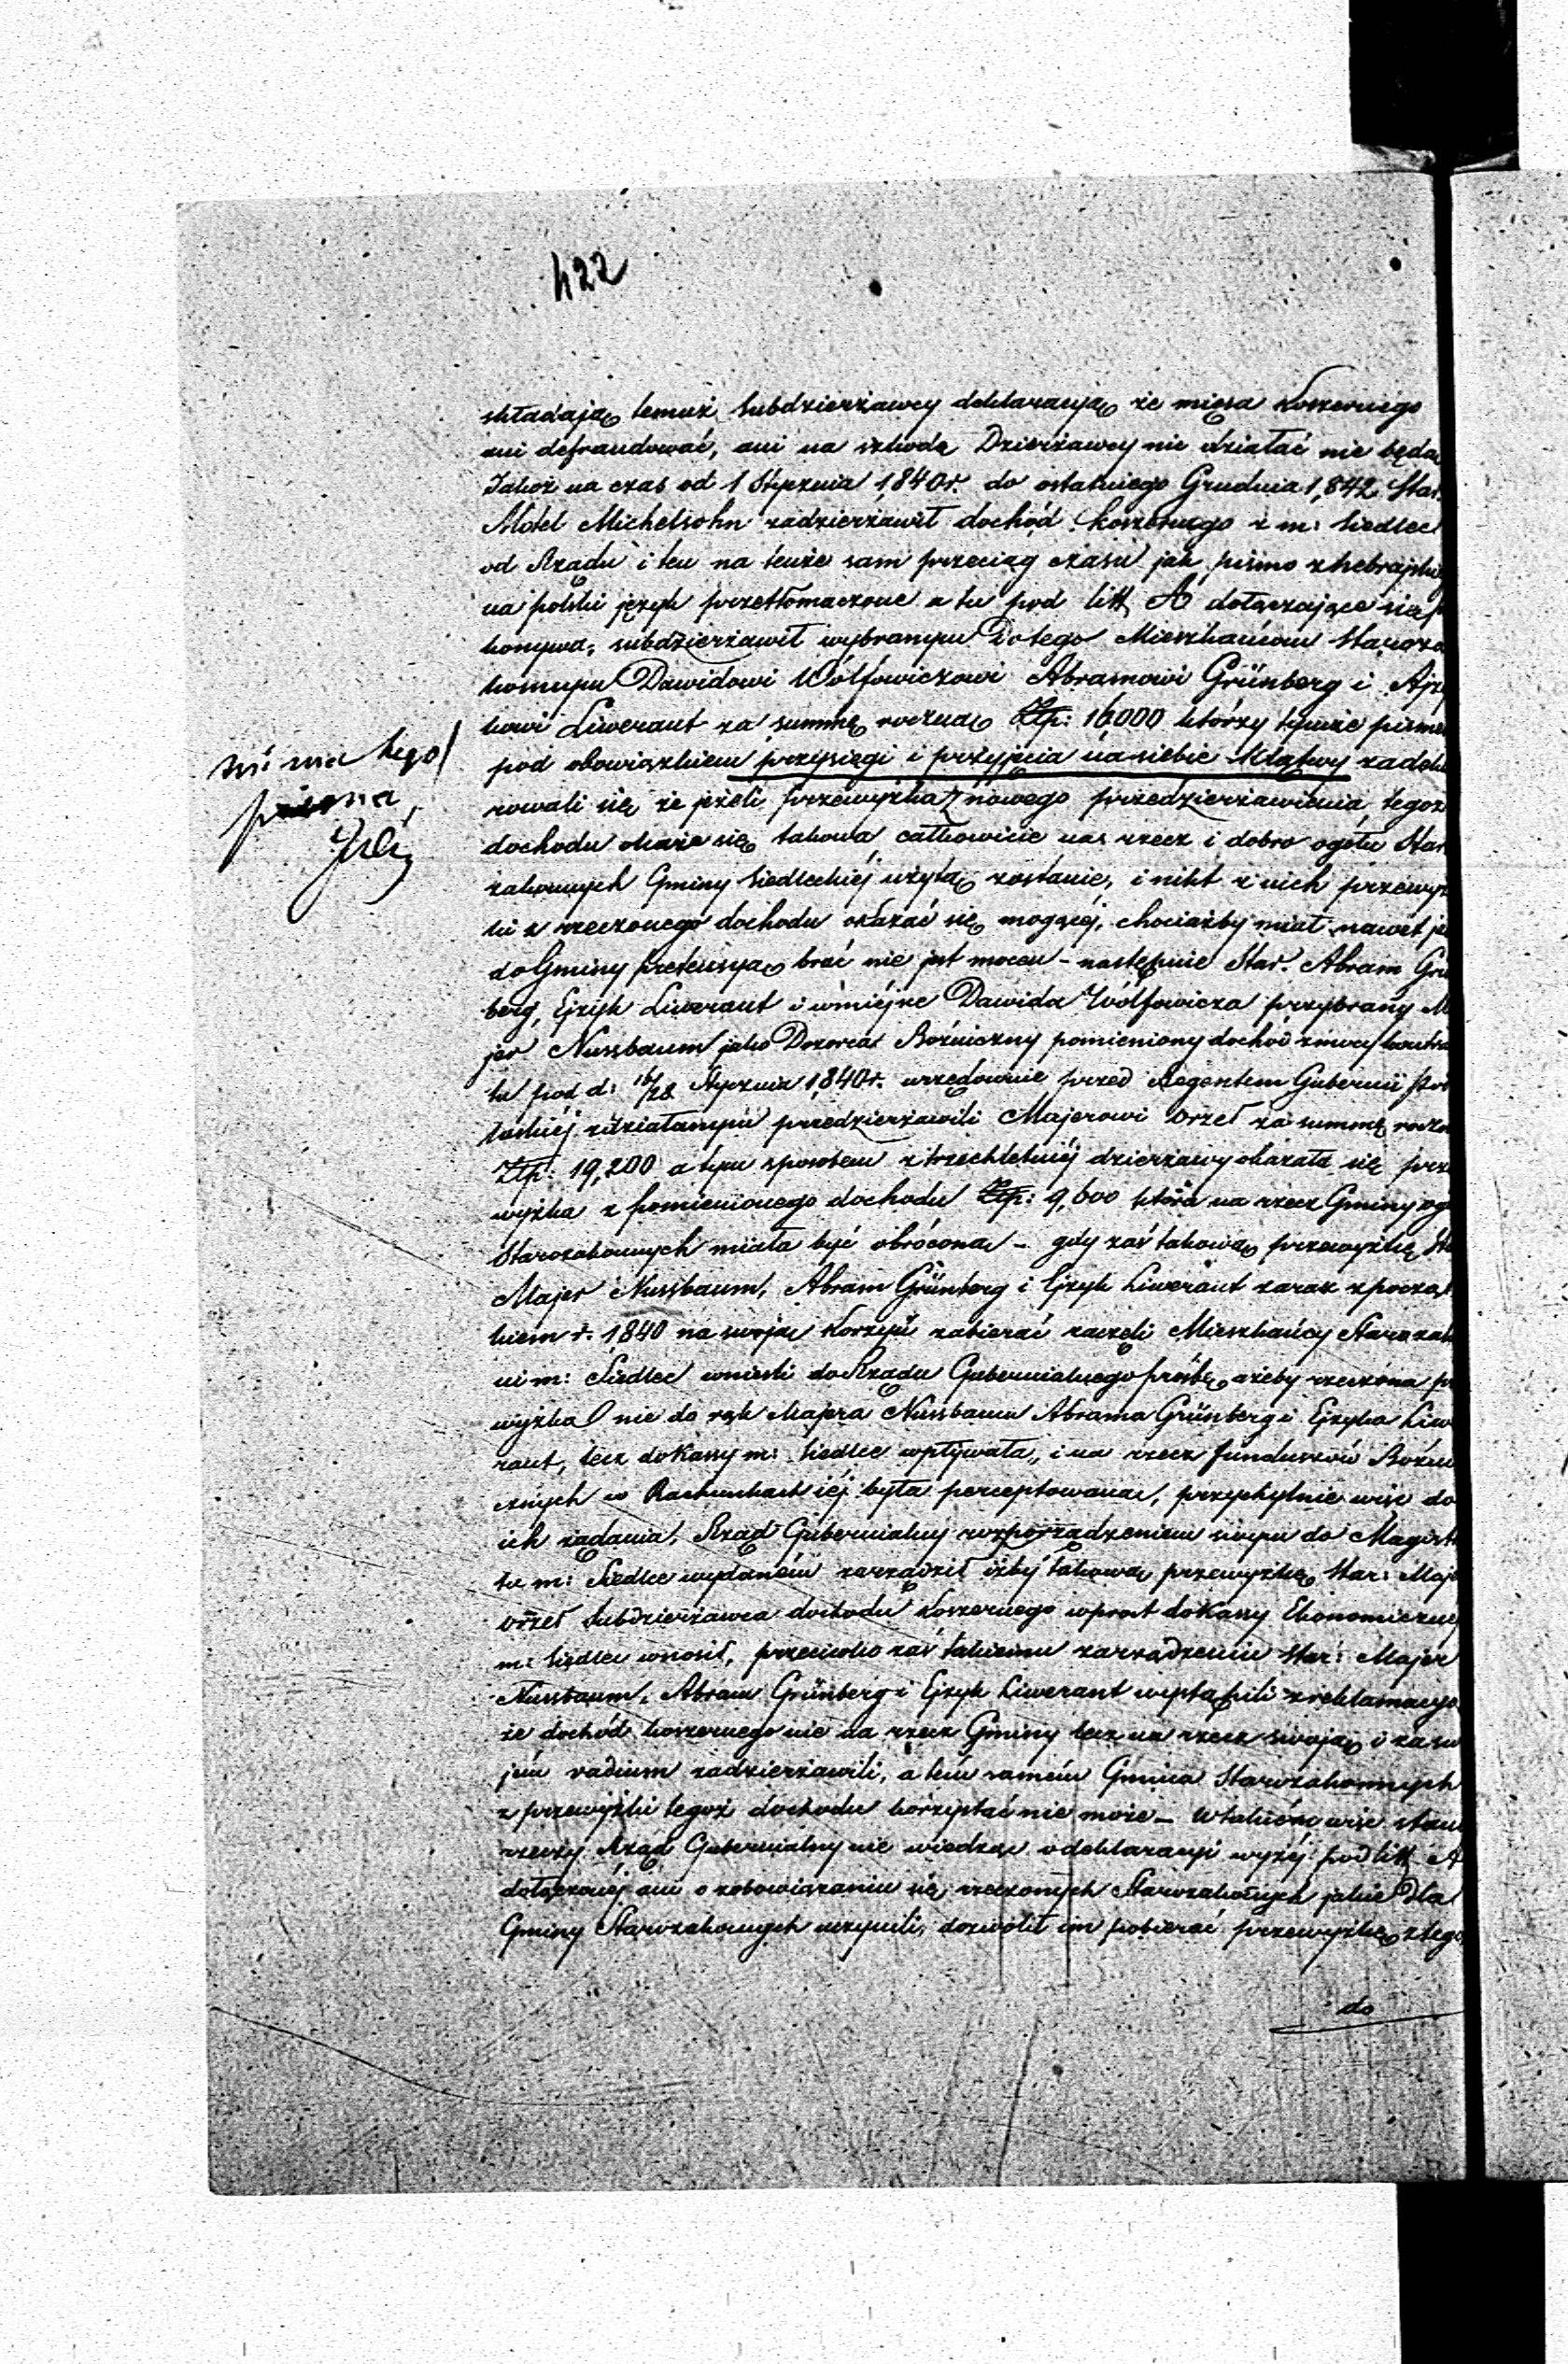 422
składają temuż Subdzierżawcy deklaracyą że mięsa koszernego
ani defraudować, ani na szkodę Dzierżawcy nie działać nie będą
Jakoż na czas od 1 Stycznia 1,840 r. do ostatniego Grudnia 1,842 Star.
Motel Michelsohn zadzierżawił dochód koszernego z m: Siedlec
od Rządu i ten na tenże sam przeciąg czasu jak pismo z hebrajskie
na polski język przetłomaczone a tu pod litt. A dołączające się
konywa, subdzierżawił wybranym Do tego Mieszkańcom Staroza
konnym Dawidowi Wolfowiczowi Abramowi Grünberg i Ajzy
kowi Liwerant za summę roczną Złp: 16000 którzy tymże pismem
pod obowiązkiem przysięgi i przyjęcia na siebie klątwy zadekla
rowali się że jeżeli przewyżka z nowego przedzierżawienia tegoż
dochodu okaże się takowa całkowicie na rzecz i dobro ogółu Star
zakonnych Gminy Siedleckiéj użytą zostanie, i nikt z nich przewyż
ki z rzeczonego dochodu okazać się mogącéj, chociażby miał nawet ja
do Gminy pretensyą brać nie jest mocen – następnie Star. Abram Grü
berg, Ejzyk Liwerant i w miejsce Dawida Wolfowicza przybrany M
jer Nussbaum jako Dozorca Bożniczny pomieniony dochód z mocy kontra
tu pod d: 16/28 Stycznia 1,840 r. urzędownie przed Regentem Gubernii Pod
laskiéj zdziałanym przedzierżawili Majerowi Orzeł za summę roczn
Złp: 19,200 a tym sposobem z trzechletniéj dzierżawy okazała się prze
wyżka z pomienionego dochodu Złp: 9,600 która na rzecz Gminy og
Starozakonnych miała być obrócona – gdy zaś takową przewyżkę St
Majer Nussbaum, Abram Grünberg i Ejzyk Liwerant zaraz z począt
kiem r. 1,840 na swoją korzyść zabierać zaczęli Mieszkańcy Starozak
ni m: Siedlec wnieśli do Rządu Gubernialnego prośbę ażeby rzeczona prz
wyżka nie do rąk Majera Nussbaum Abrama Grünberg i Ejzyka Liw
rant, lecz do Kassy m: Siedlec wpływała, i na rzecz funduszów Bożni
cznych w Rachunkach iéj była perceptowana, przychylnie więc do
ich żądania, Rząd Gubernialny rozporządzeniem swym do Magistr
tu m: Siedlec wydaném zarządził iżby takową przewyżkę Star: Maje
Orzeł Subdzierżawca dochodu koszernego wprost do Kassy Ekonomicznéj
m: Siedlec wnosił, przeciwko zaś takiemu zarządzeniu Star: Majer
Nussbaum, Abram Grünberg i Ejzyk Liwerant wystąpili z reklamacyą
że dochód koszernego nie na rzecz Gminy lecz na rzecz swoją i za sw
jém vadium zadzierżawili, a tém samém Gmina Starozakonnych
z przewyżki tegoż dochodu korzystać nie może – W takiém więc stan
rzeczy Rząd Gubernialny nie wiedząc o deklaracyi wyżéj pod litt A
dołączonéj ani o zobowiązaniu się rzeczonych Starozakonnych jakie dla
Gminy Starozakonnych uczynili, dozwolił im pobierać przewyżkę z tego
do
nie ma tego
pisma,